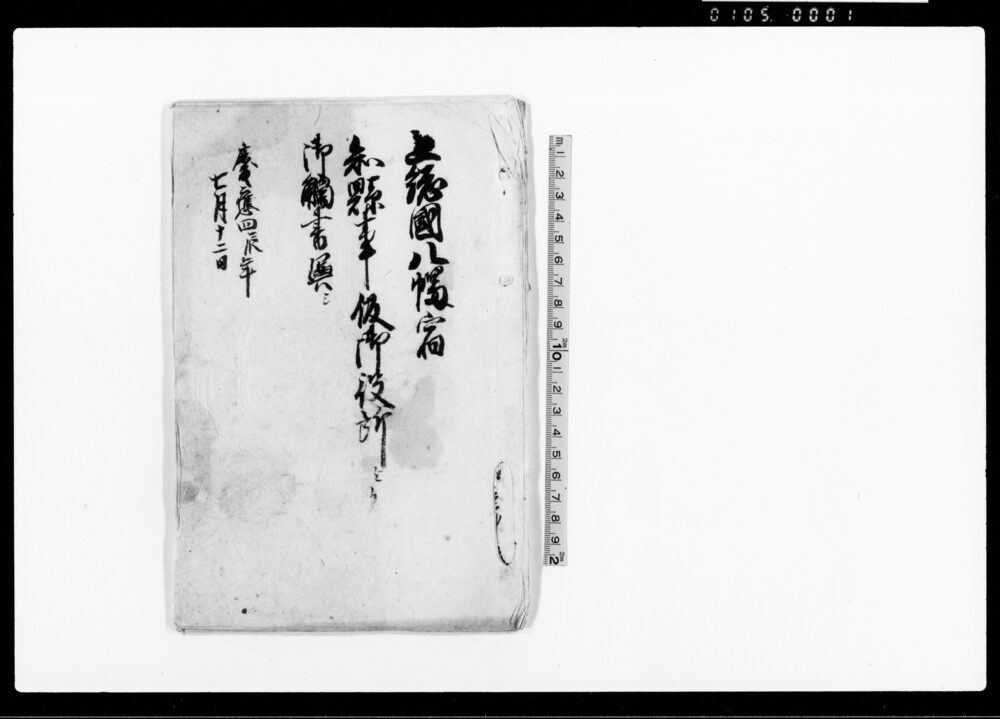 0105 0001
上総國八幡宿
知縣事仮御役所
御觸書写
慶應四辰年
七月十二日
m 1 2 3 4 5 6 7 8 9 10 1 2 3 4 5 6 7 8 9 2